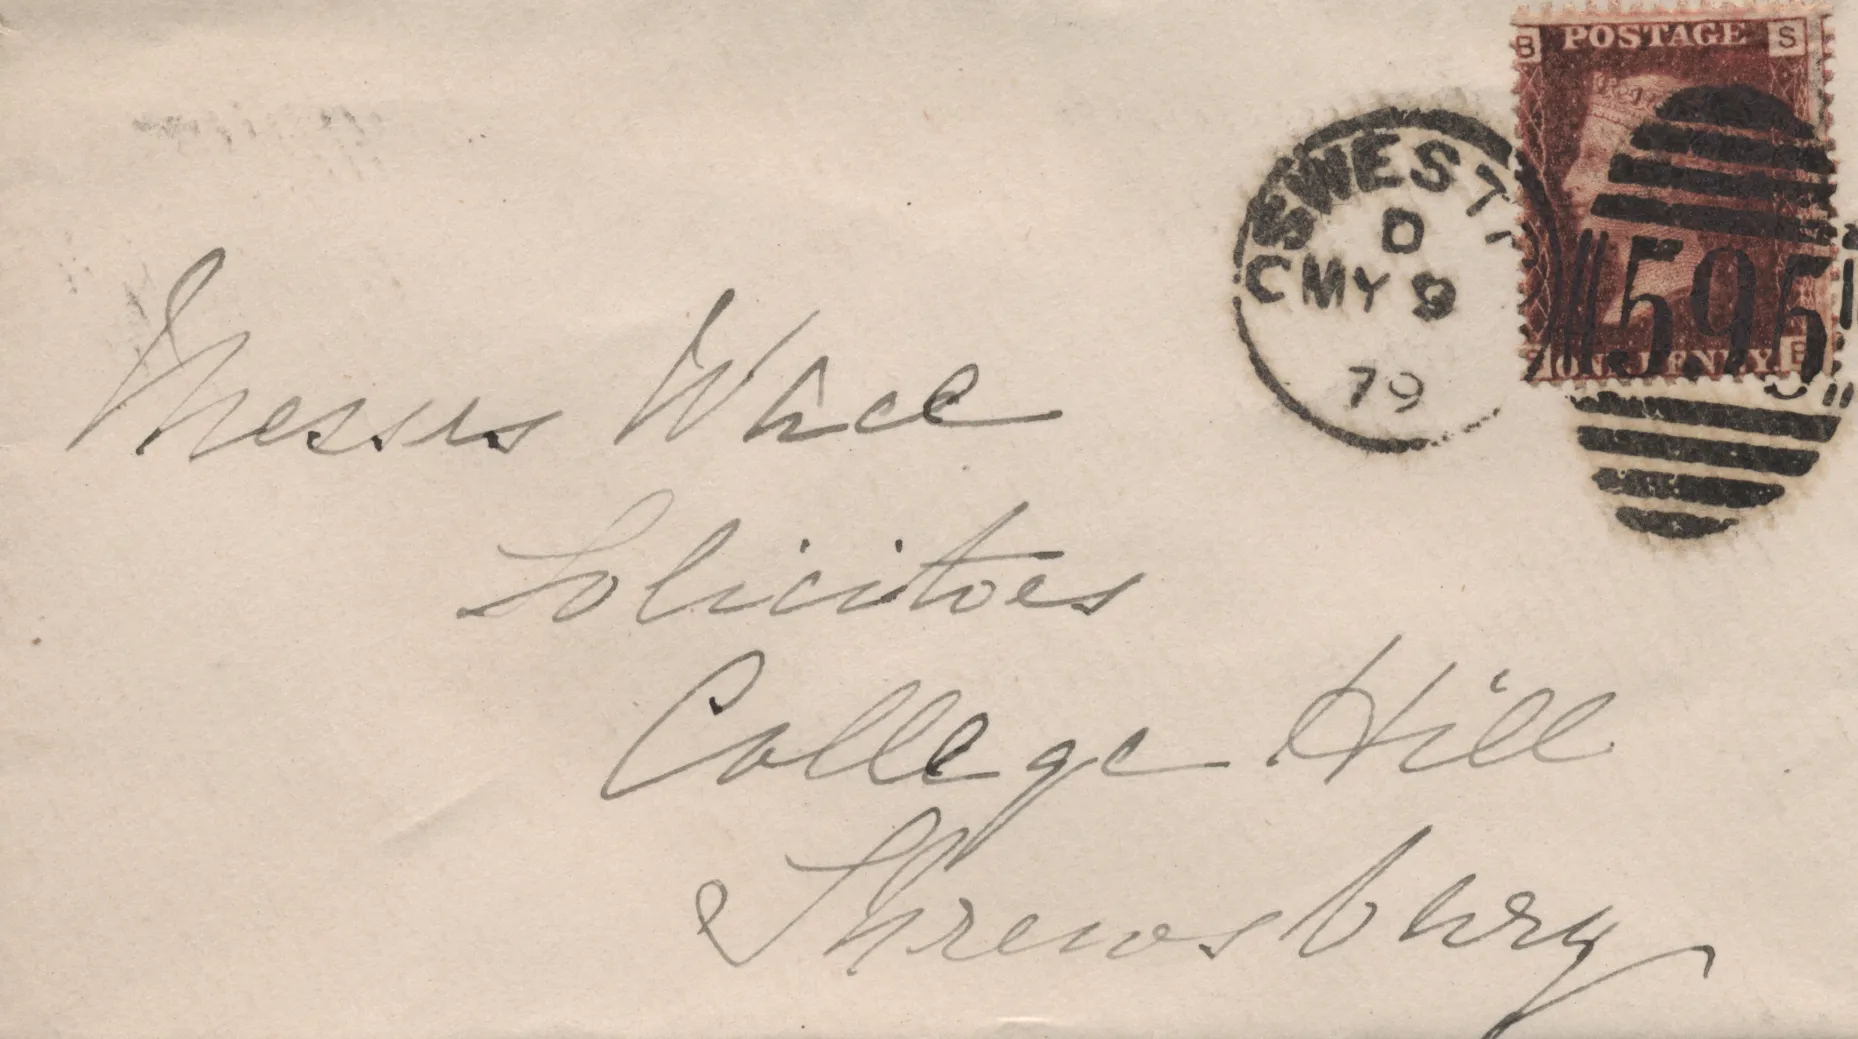 B POSTAGE S
SWESTR
D
C MY 9
79
595
ONE PENNY B
Messrs Wace
Solicitors
College Hill
Shrewsbury